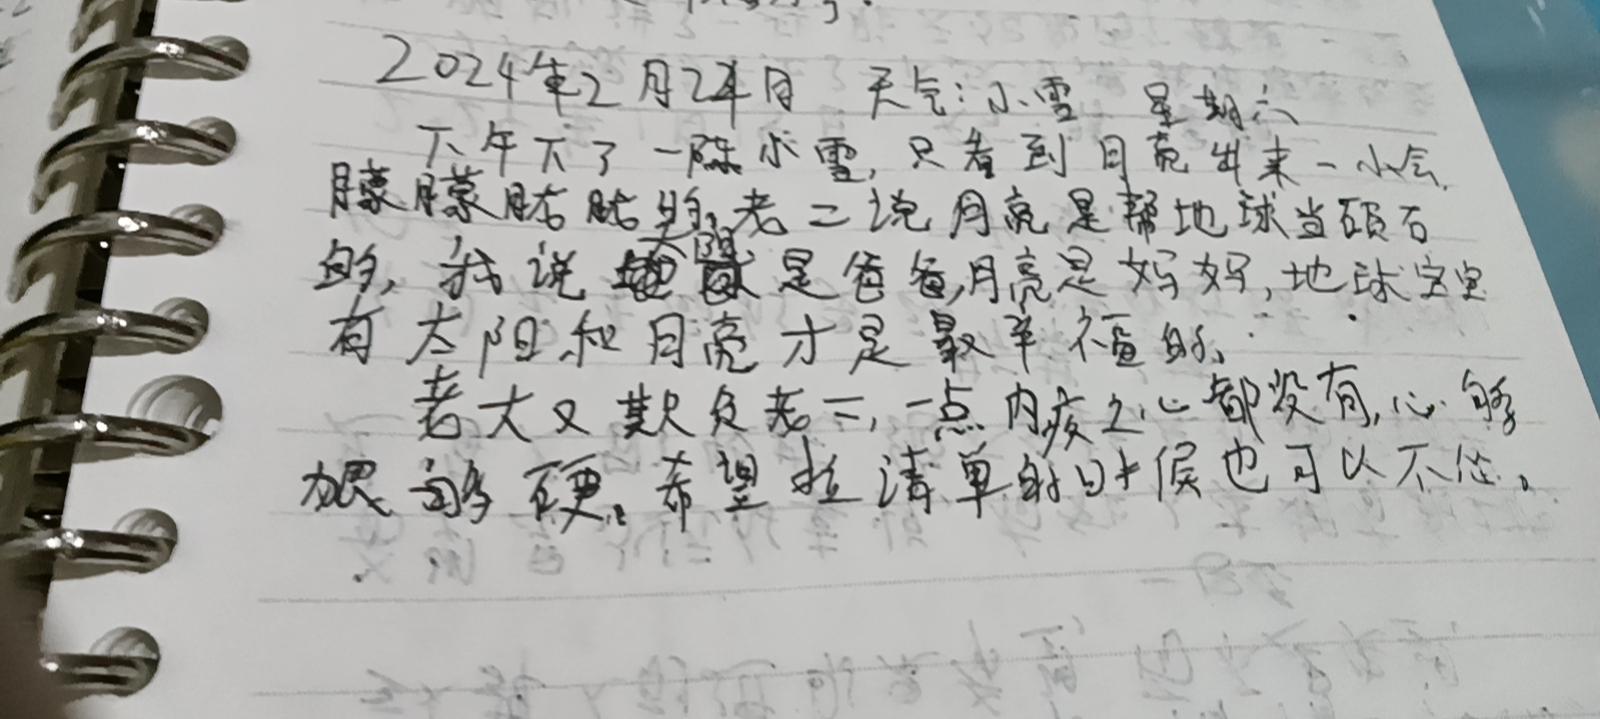 2024年2月24日 天气:小雪 星期六
下午下了一阵小雪,只看到月亮出来一小会,
朦朦胧胧的,老二说月亮是帮地球当陨石
的,我说太阳是爸爸,月亮是妈妈,地球宝宝
有太阳和月亮才是最幸福的。
老大又欺负老二,一点内疚之心都没有,心够
狠 够硬。希望拉清单的时候也可以不怂。